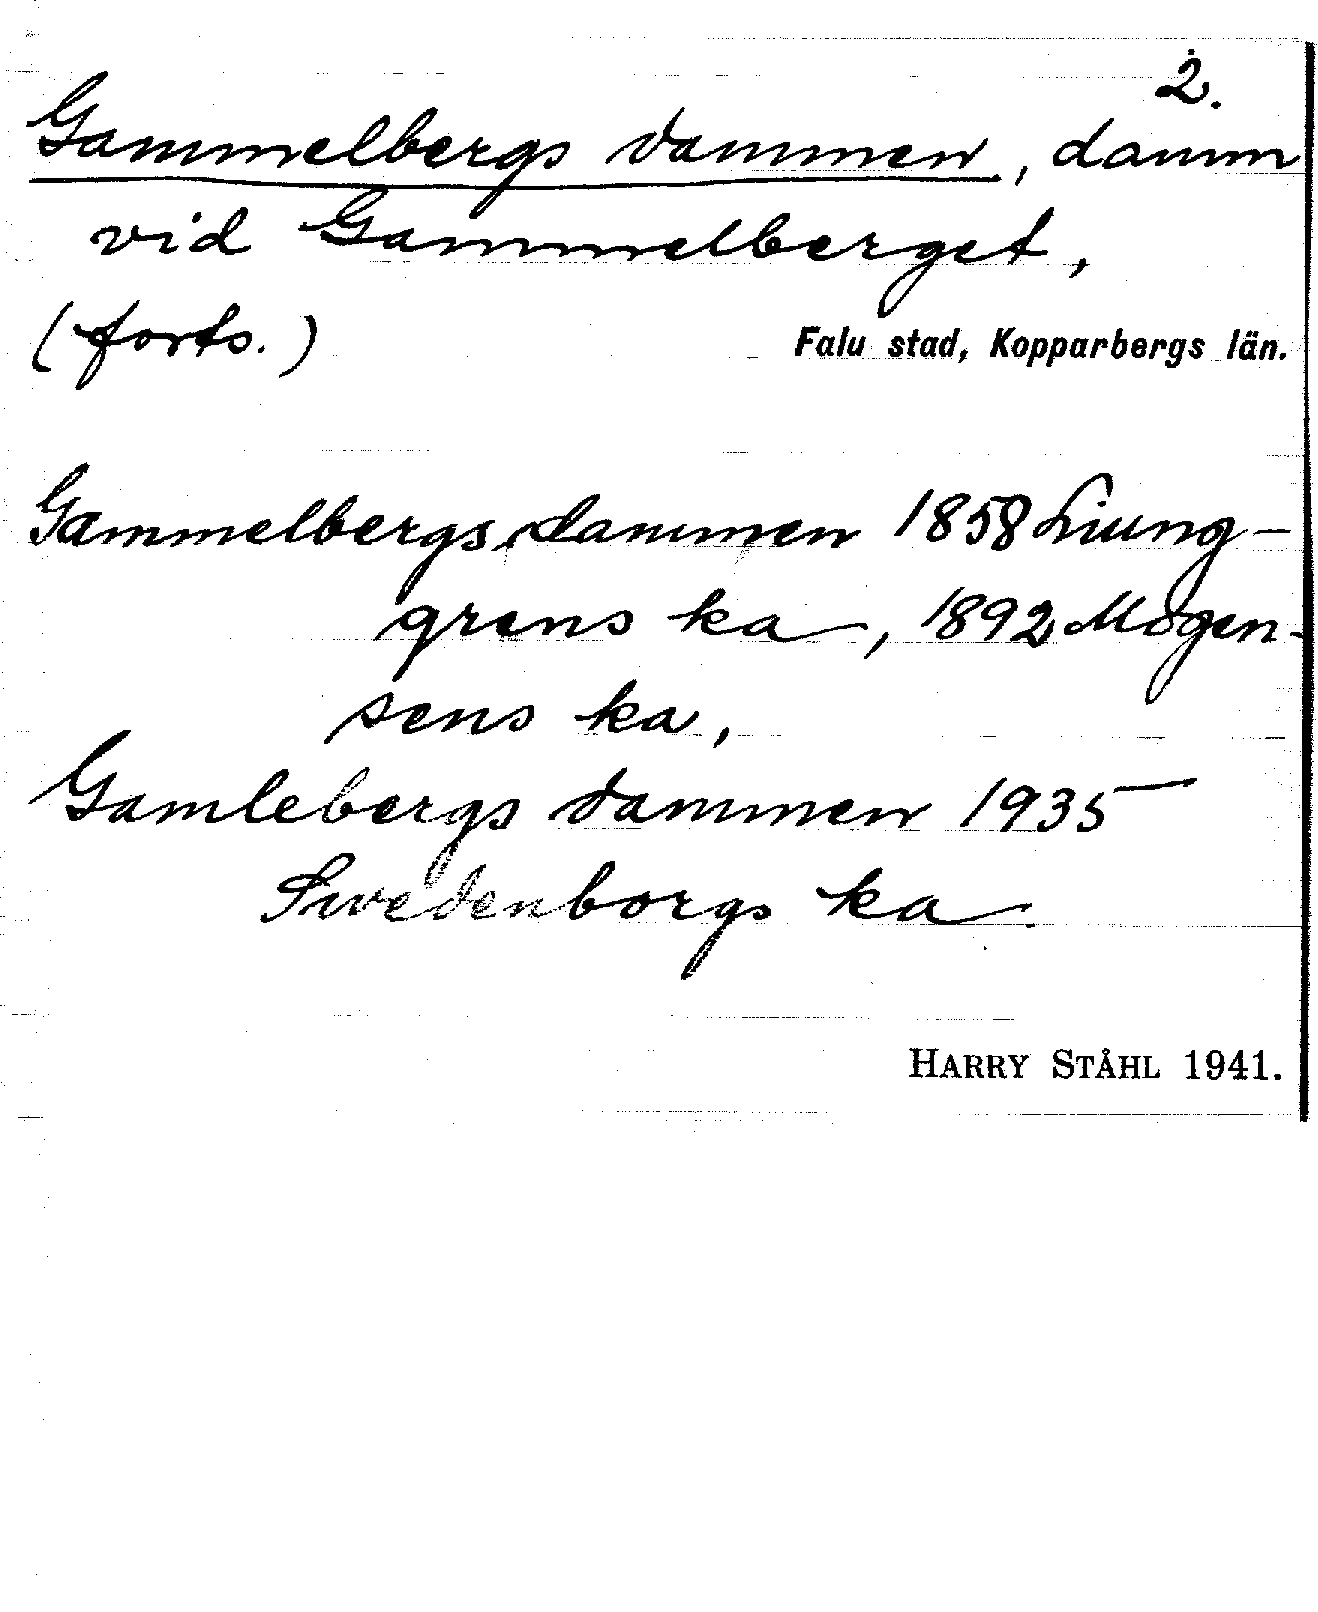 2.
Gammelbergs dammen, damm
vid Gammelberget,
(forts.)
Falu stad, Kopparbergs län.
Gammelbergs dammen 1858 Liung-
grens ka, 1892 Mogen-
sens ka,
Gamlebergs dammen 1935
Swedenborgs ka
HARRY STÅHL 1941.